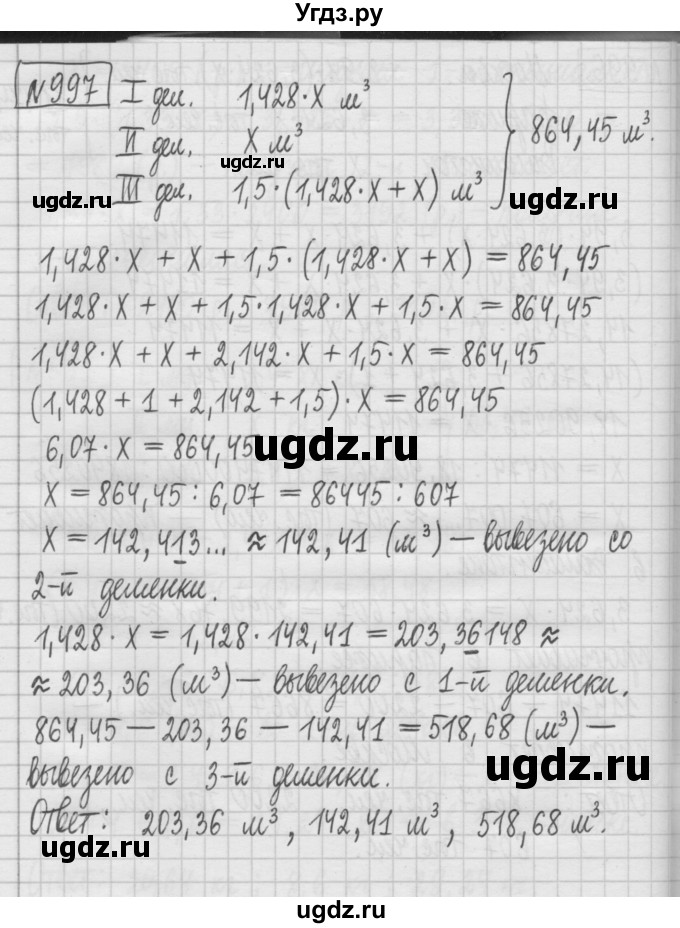 Угдз.ру
№997 I дел. 1,428·X м³
II дел. X м³
ugdz.ru
864,45 м³.
ugdz.ru III дел. 1,5·(1,428·X+X) м³ ugdz.ru
1,428·X + X + 1,5·(1,428·X+X) = 864,45
1,428·X + X + 1,5·1,428·X + 1,5·X = 864,45
1,428·X + X + 2,142·X + 1,5·X = 864,45
(1,428 + 1 + 2,142 + 1,5)·X = 864,45
6,07·X = 864,45
ugdz.ru
X = 864,45 : 6,07 = 86445 : 607
X = 142,413... ≈ 142,41 (м³) — вывезено со
2-й делянки.
1,428·X = 1,428·142,41 = 203,36148 ≈
≈ 203,36 (м³) — вывезено с 1-й делянки.
864,45 — 203,36 — 142,41 = 518,68 (м³) —
вывезено с 3-й делянки.
ugdz.ru
Ответ: 203,36 м³, 142,41 м³, 518,68 м³.
ugdz.ru
ugdz.ru